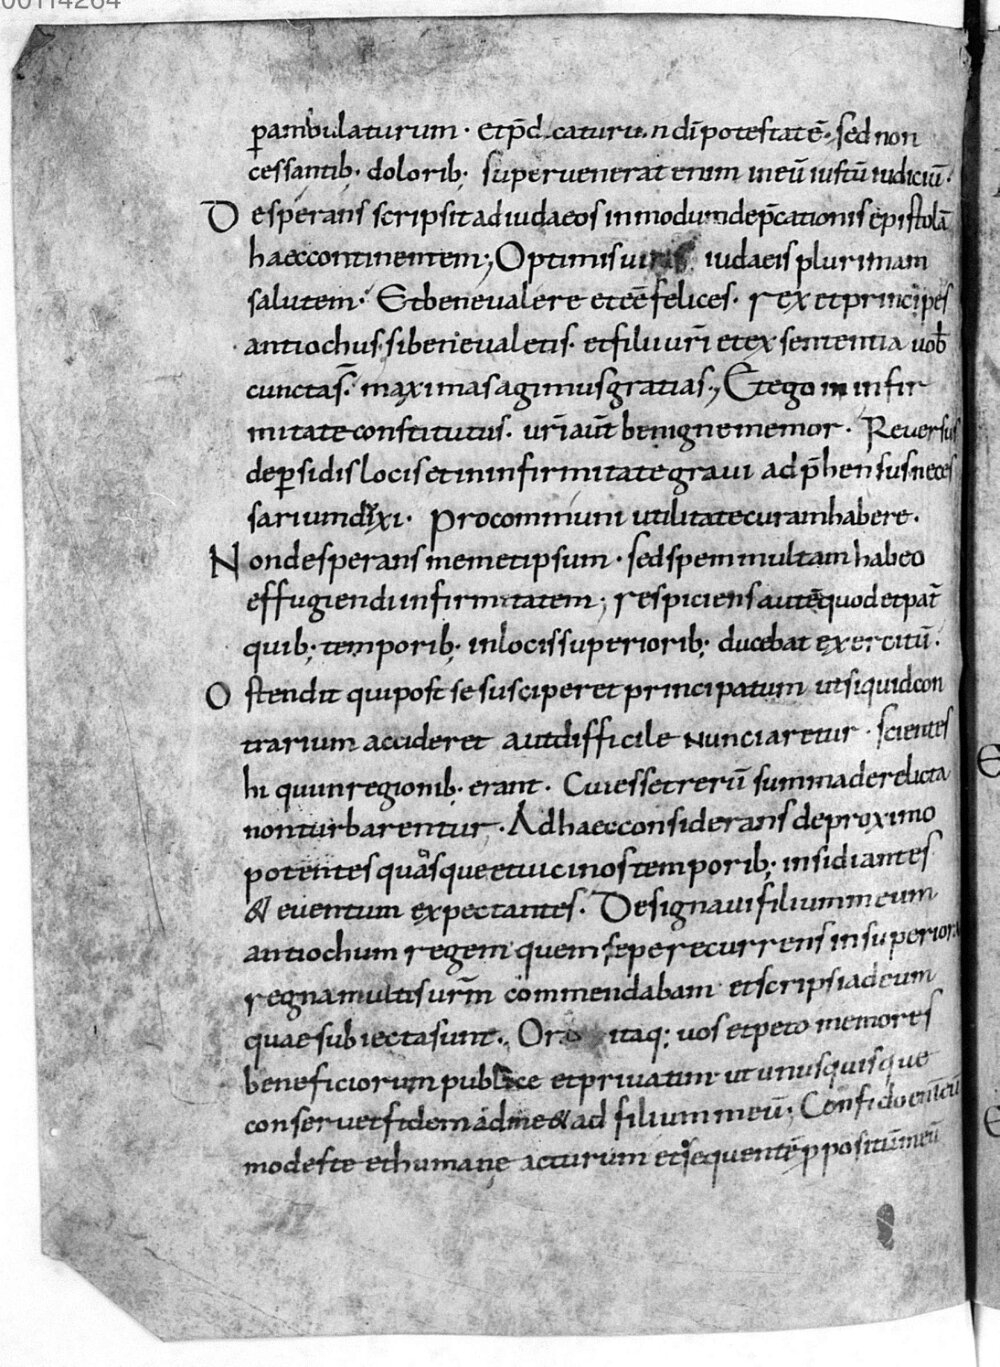 00114264
ꝑambulaturum · et p̄dicaturum dī potestatē · sed non
cessantib; doloribꝫ · supervenerat enim in eū iustū iudiciū ·
Desperans scripsit ad iudaeos in modum dep̄cationis epistolā
haec continentem; Optimis viris iudaeis plurimam
salutem · Et bene valere et eē felices · rex et princeps
antiochus si bene valetis · et filii vr̄i et ex sententia vob̄
cuncta s̄ · maximas agimus gratias; Et ego in infir
mitate constitutus · vr̄i aūt benigne memor · Reversus
de ꝑsidis locis et in infirmitate gravi adp̄hensus neces
sarium dixi · Pro communi utilitate curam habere ·
Non desperans memetipsum · sed spem multam habeo
effugiendi infirmitatem; respiciens autē quod et pat̄
quib; temporib; in locis superiorib; ducebat exercitū ·
Ostendit qui post se susciperet principatum ut si quid con
trarium accideret aut difficile nunciaretur · scientes
hi qui in regionib; erant · Cui esset rerū summa derelicta
non turbarentur · Ad haec considerans de proximo
potentes quosque et vicinos temporib; insidiantes
& eventum expectantes · Designavi filium meum
antiochum regem quem sepe recurrens in superiora
regna multis vr̄m commendabam et scripsi ad eum
quae subiecta sunt · Oro itaq; vos et peto memores
beneficiorum publice et privatim ut unusquisque
conservet fidem ad me & ad filium meū; Confido enī eū
modeste et humane acturum et sequentē ꝓpositū meū